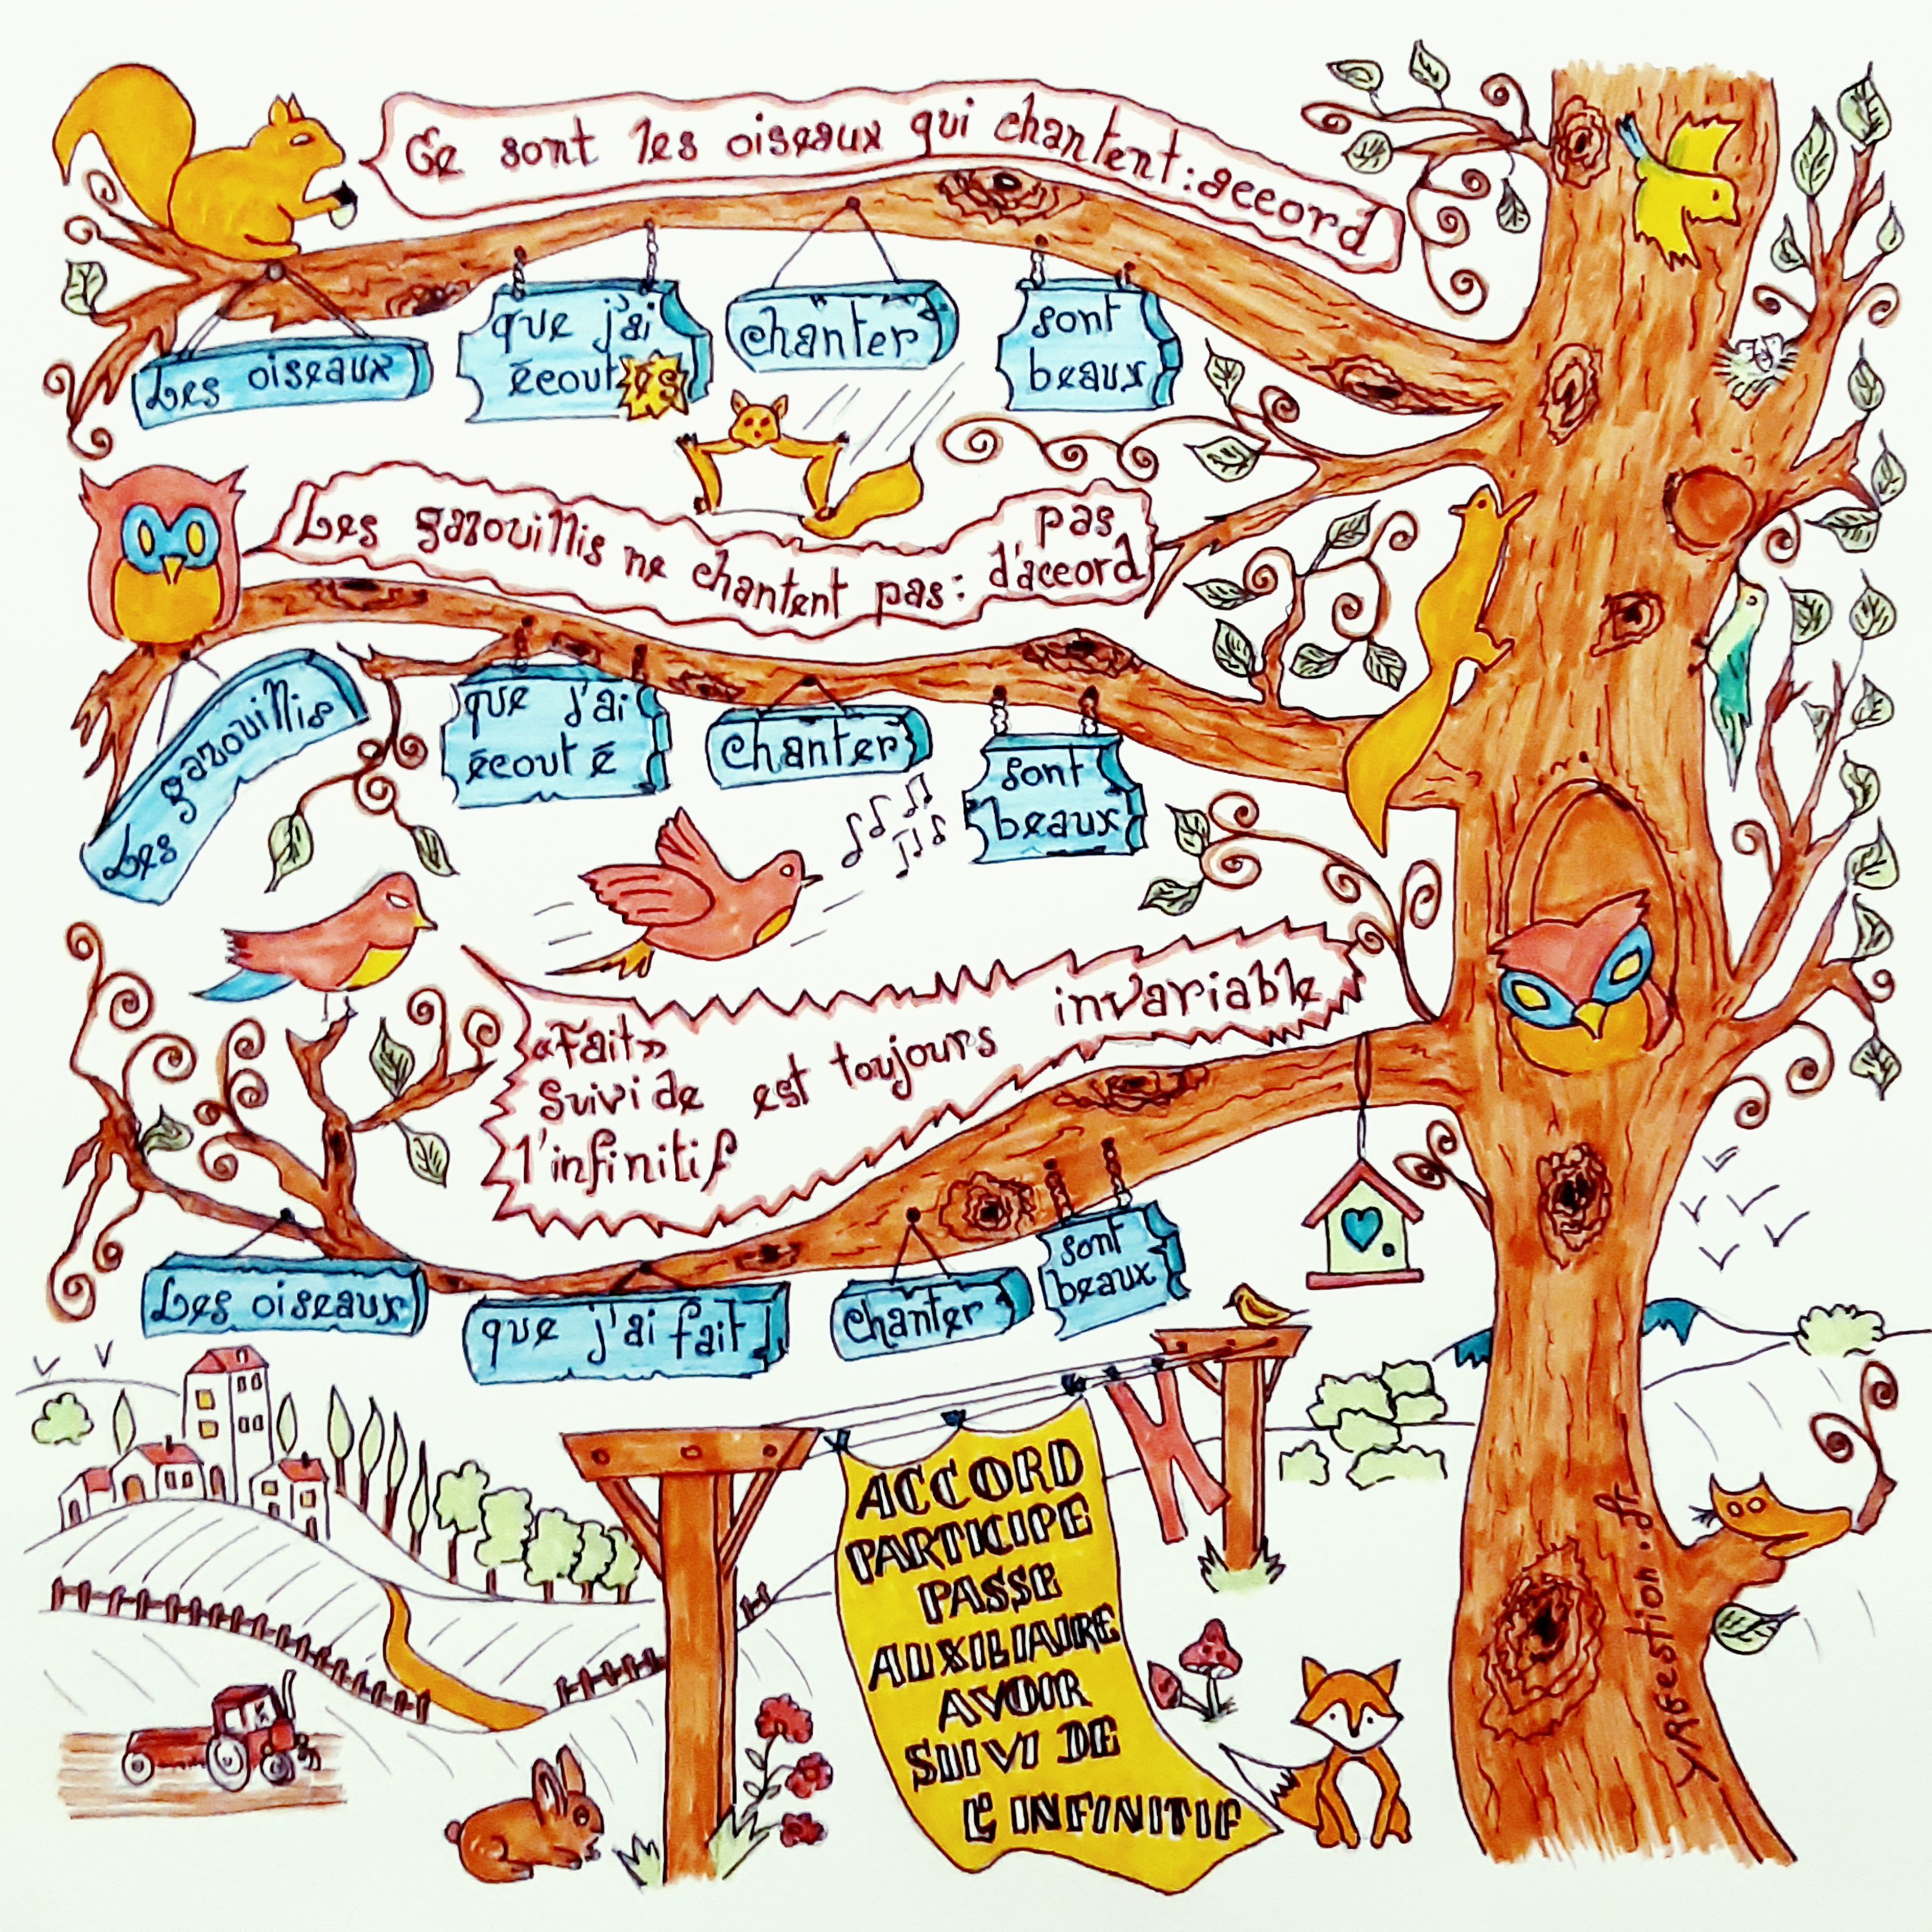 Ce sont les oiseaux qui chantent : accord
Les oiseaux
que j'ai
écoutés
chanter
sont
beaux
Les gazouillis ne chantent pas : pas
d'accord
Les gazouillis
que j'ai
écouté
chanter
sont
beaux
«Fait»
suivi de est toujours invariable
l'infinitif
Les oiseaux
que j'ai fait
chanter
sont
beaux
ACCORD
PARTICIPE
PASSE
AUXILIAIRE
AVOIR
SUIVI DE
L'INFINITIF
YRGestion.fr